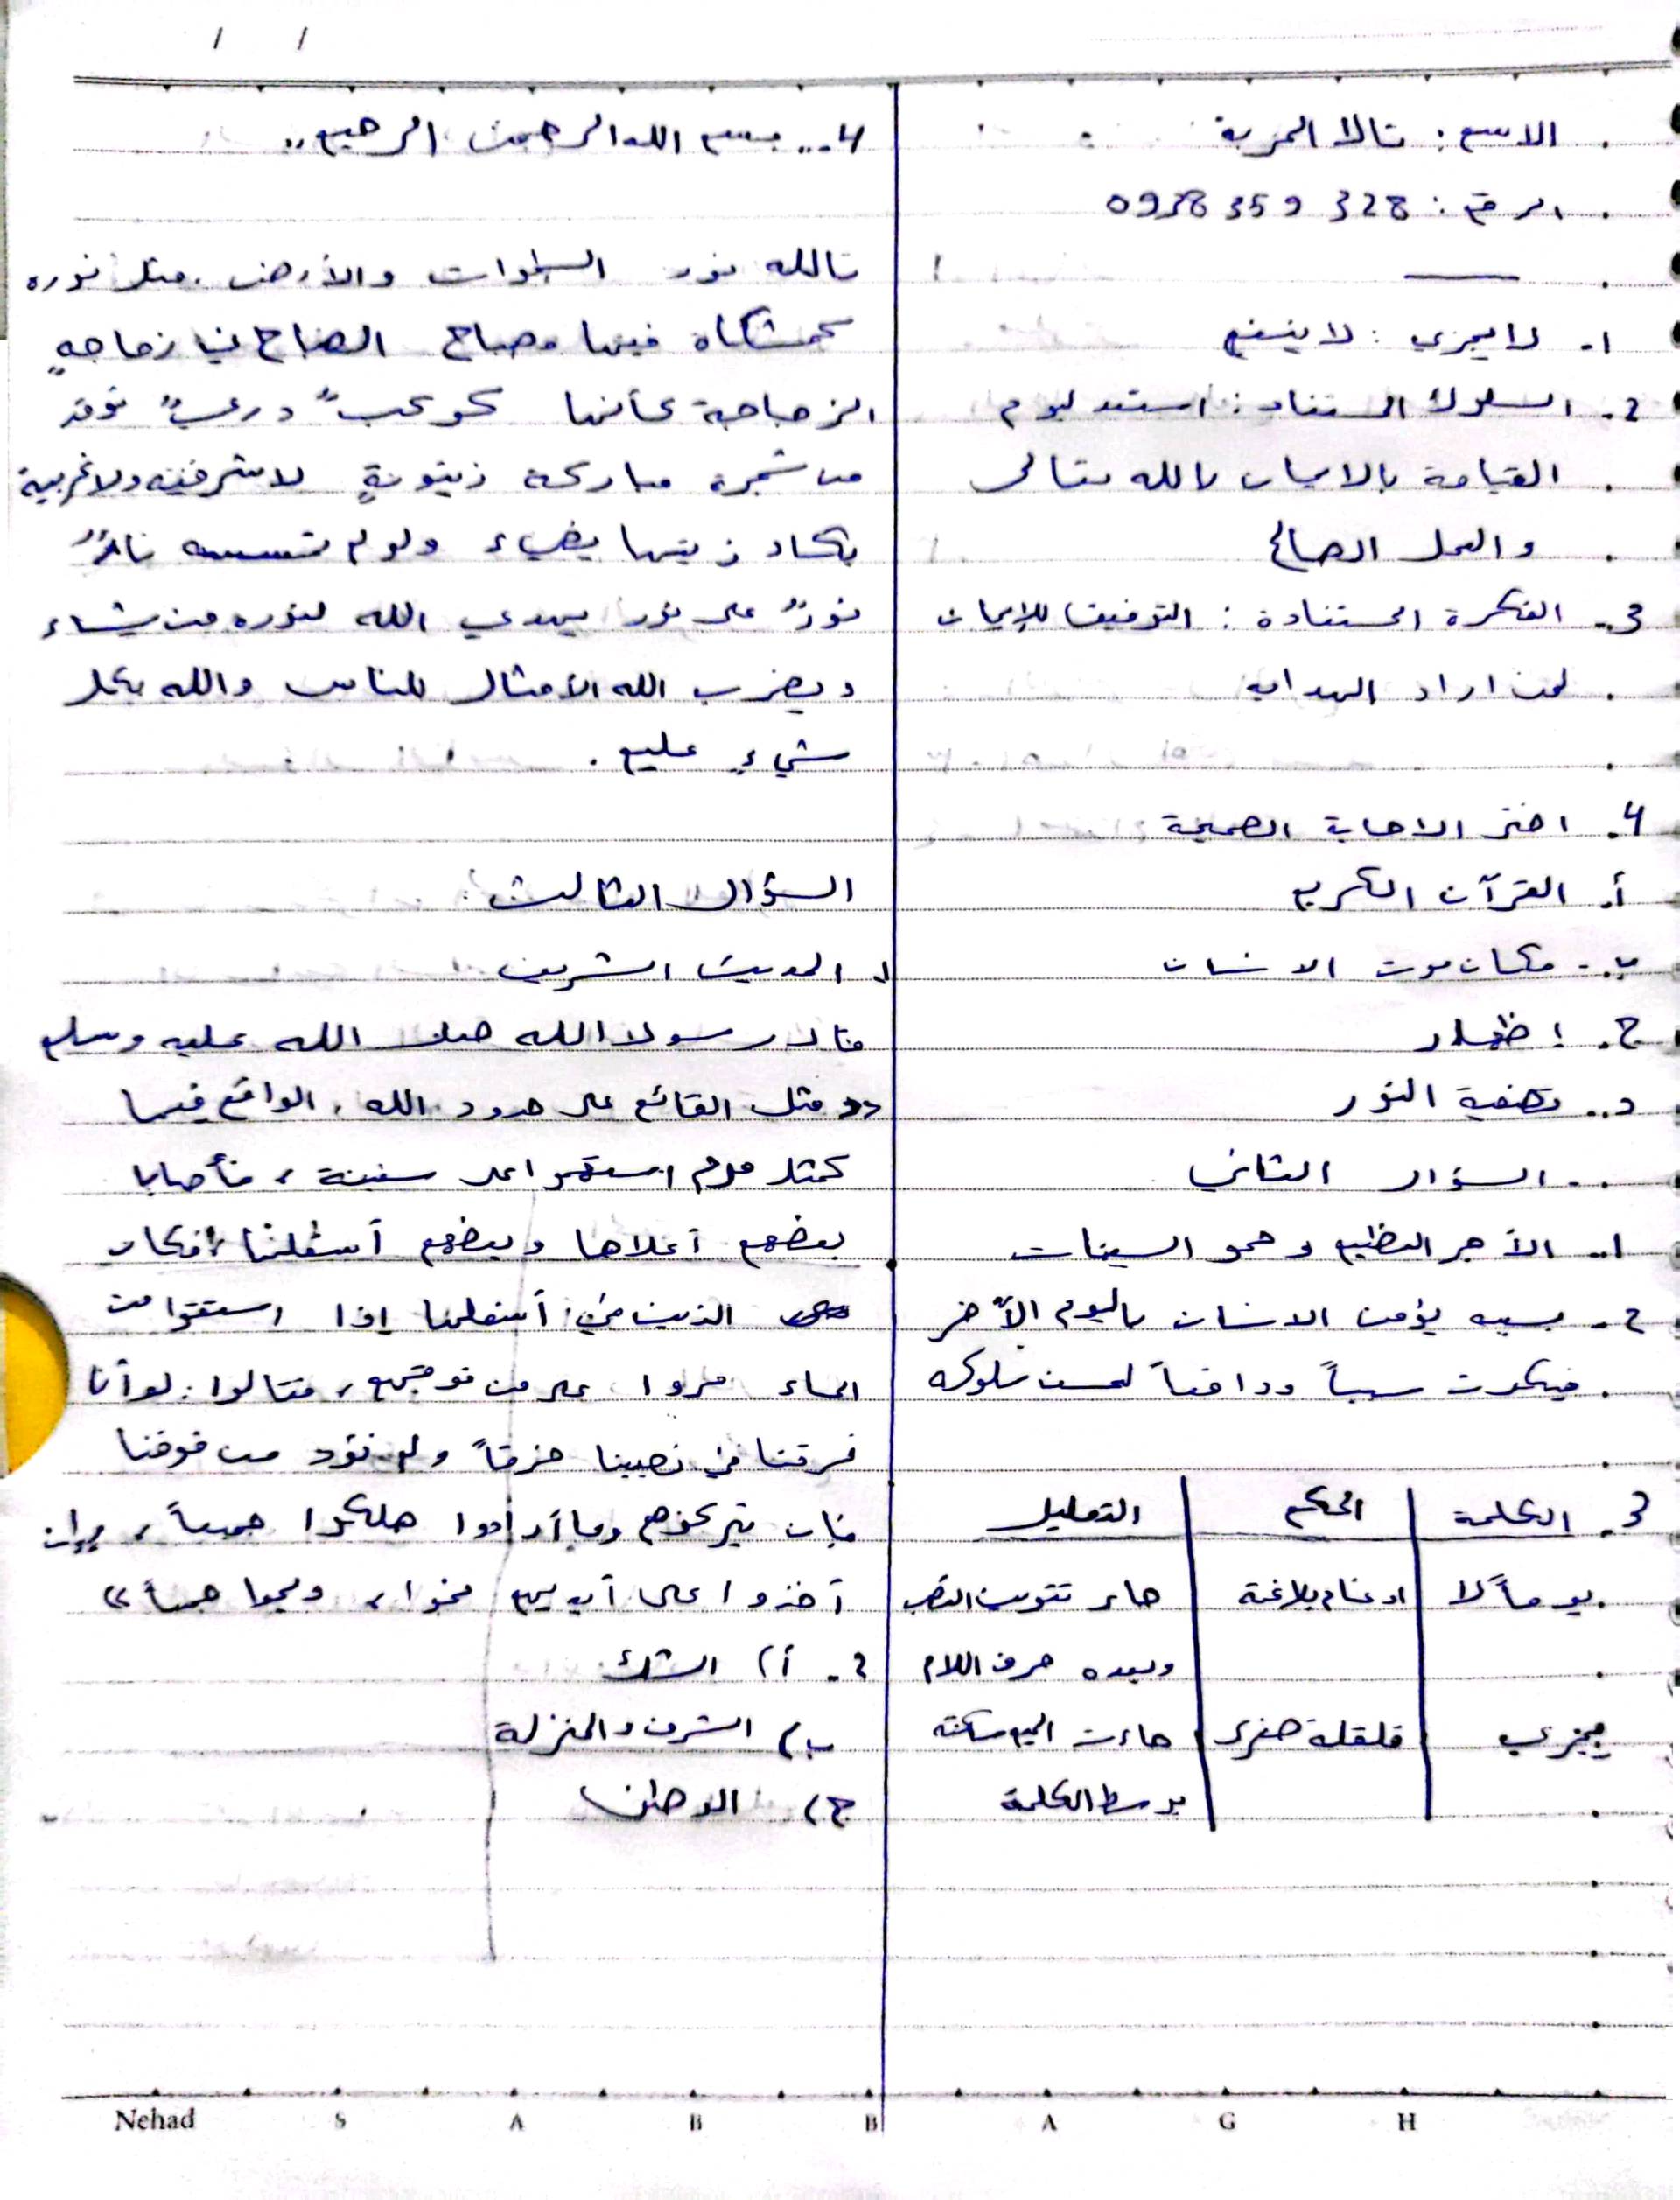 الاسم : تالا الحربة
الرقم : 0938 359 328
1- لا يجزي : لا ينفع
2- السلوك المستفاد : استعد ليوم
القيامة بالايمان بالله تعالى
والعمل الصالح
3- الفكرة المستفادة : التوفيق للإيمان
لمن اراد الهداية
4. اختر الاجابة الصحيحة
أ. القرآن الكريم
ب- مكان موت الانسان
ج. إظهار
د.. تصفية النور
السؤال الثاني
1.. الأجر العظيم ومحو السيئات
2- بسبه يؤمن الانسان باليوم الآخر
فيكون سبباً ودافعاً لحسن سلوكه
3. الكلمة | الحكم | التعليل
يوماً لا | ادغام بلاغنة | جاء تنوين النصب
وبعده حرف اللام
يجزي | قلقلة صغرى | جاءت الجيم ساكنة
بوسط الكلمة
4.. بسم الله الرحمن الرحيم ..
الله نور السموات والأرض . مثل نوره
كمشكاه فيها مصباح المصباح في زجاجةٍ
الزجاجة كأنها كوكبٌ درىٌ توقد
من شجرة مباركة زيتونةٍ لا شرقية ولا غربية
يكاد زيتها يضيء ولو لم تمسسه نارٌ
نورٌ على نور يهدي الله لنوره من يشاء
ويضرب الله الأمثال للناس والله بكل
شيءٍ عليم .
السؤال الثالث :
1 الحديث الشريف
قال رسول الله صلى الله عليه وسلم
<< مثل القائم على حدود الله ، الواقع فيها
كمثل قوم استهموا على سفينة ، فأصابا
بعضهم أعلاها وبعضهم أسفلها ، فكان
الذين في أسفلها إذا استقوا من
الماء مروا على من فوقهم ، فقالوا : لو أنا
خرقنا في نصيبنا خرقاً ولم نؤذ من فوقنا
فإن يتركوهم وما أرادوا هلكوا جميعاً ، وإن
أخذوا على أيديهم نجوا ، ونجوا جميعاً >>
2- أ) الشك
ب) الشرف والمنزلة
ج) الوطن
Nehad S A B B A G H